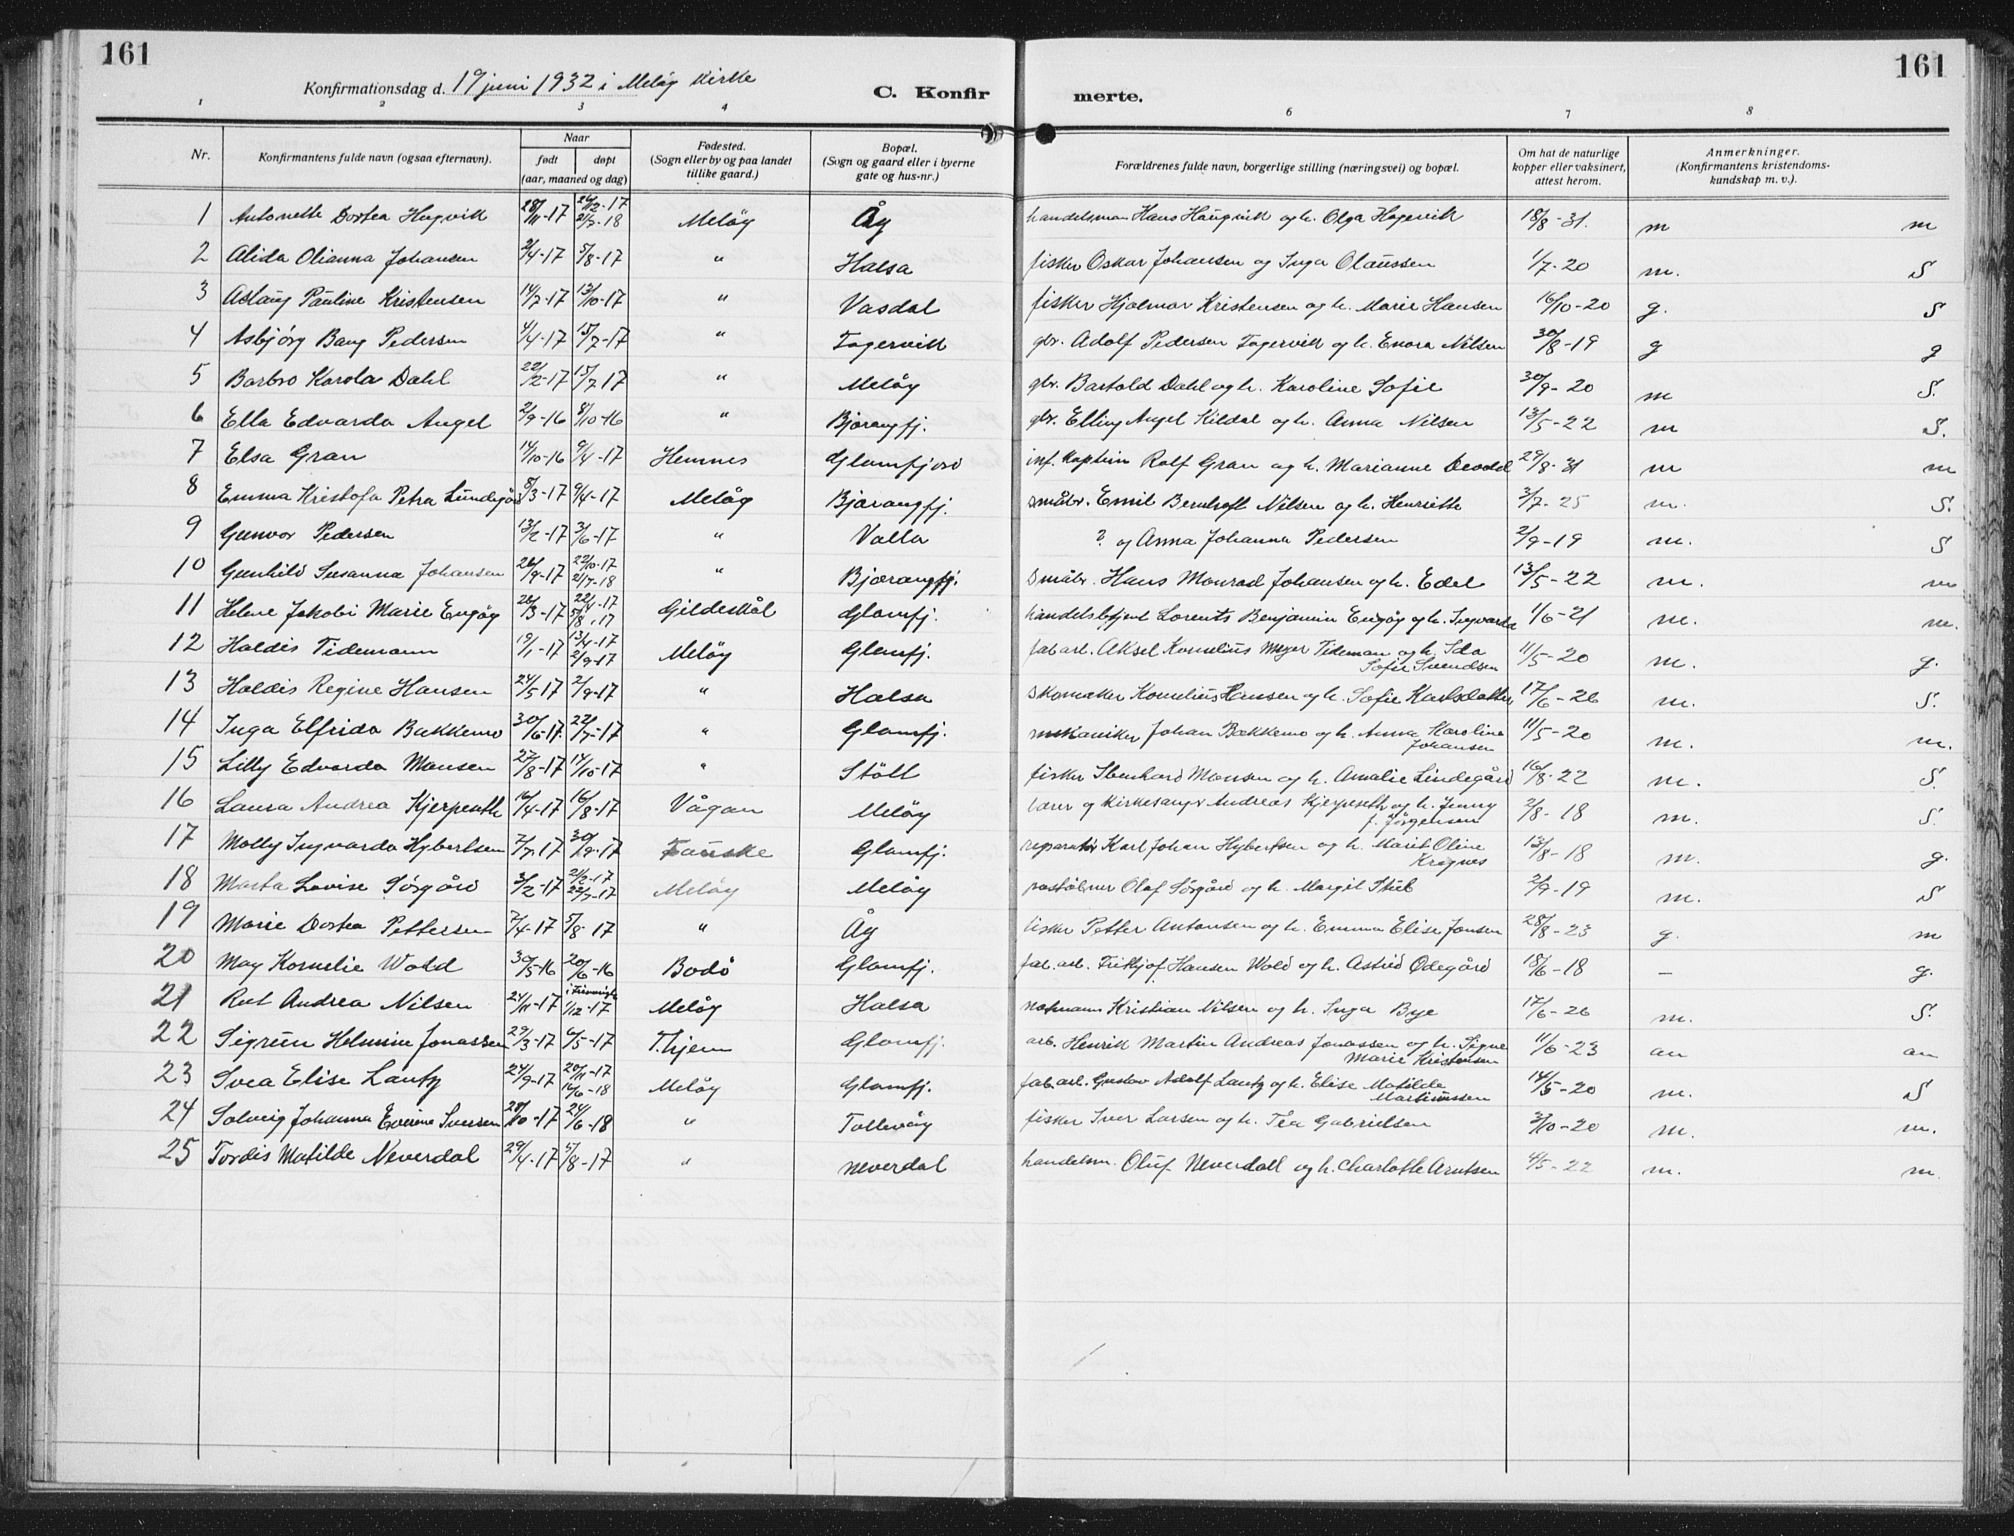 161
161
Konfirmationsdag d. 19 juni 1932 i Meløy kirke
C. Konfir merte.
1 2 3 4 6 7 8
Nr. Konfirmantens fulde navn (ogsaa efternavn). Naar født døpt (aar, maaned og dag) Fødested. (Sogn eller by og paa landet tillike gaard.) Bopæl. (Sogn og gaard eller i byerne gate og hus-nr.) Forældrenes fulde navn, borgerlige stilling (næringsvei) og bopæl. Om hat de naturlige kopper eller vaksinert, attest herom. Anmerkninger. (Konfirmantens kristendoms-kundskap m. v.).
1 Antonette Dortea Hagvik 28/11-17 26/12-17 2/7-18 Meløy Åg handelsman Hans Haugvik og h. Olga Hagevik 18/8-31. m m
2 Alida Olianna Johansen 2/4-17 5/8-17 " Halsa fisker Oskar Johansen og Inga Olaussen 1/7-20 m. S
3 Aslaug Pauline Kristensen 14/7-17 13/10-17 " Vasdal fisker Hjalmar Kristensen og h. Marie Hansen 16/10-20 g. S
4 Asbjørg Bang Pedersen 4/4-17 15/7-17 " Fagervik gbr. Adolf Pedersen Fagervik og h. Enora Nilsen 30/8-19 g g
5 Barbro Karola Dahl 22/2-17 15/7 17 " Meløy gbr. Bartold Dahl og h. Karoline Sofie 30/9-20 m S.
6 Ella Edvarda Angel 2/9-16 8/10-16 " Bjærangfj. gbr. Elling Angel Kildal og h. Anna Nilsen 13/5-22 m S.
7 Elsa Gran 14/10-16 9/4-17 Hemnes Glomfjord inf. kaptein Rolf Gran og h. Marianne 29/8-31 m m
8 Emma Kristofa Petra Lundegård 8/3-17 9/4-17 Meløy Bjærangfj. småbr. Emil Berntoft Nilsen og h. Henriette 3/7-25 m. S.
9 Gunvor Pedersen 13/2-17 3/6-17 " Valla ? og Anna Johanna Pedersen 2/9-19 m. S
10 Gunhild Susanna Johansen 26/9-17 22/10-17 21/7-18 " Bjærangfj. småbr. Hans Monrad Johansen og h. Edel 13/5-22 m. m
11 Helene Jakobi Marie Engøy 26/3-17 22/4-17 5/8.17 Gildeskål Glomfj. handelsbetjent Lorents Benjamin Engøy og h. Ingvarda 1/6-21 m. m.
12 Haldis Tidemann 19/1-17 13/4-17 2/9-17 Meløy Glomfj. fab.arb. Aksel Kornelius Meyer Tideman og h. Ida Sofie Svendsen 11/5-20 m. g.
13 Haldis Regine Hansen 24/5 17 2/9-17 " Halsa skomaker Kornelius Hansen og h. Sofie Karlsdatter 17/6-26 m. S.
14 Inga Elfrida Bakkemo 30/6-17. 22/7-17 " Glomfj. mekaniker Johan Bakkemo og h. Anna Karoline Johansen 11/5-20 m. m.
15 Lilly Edvarda Monsen 27/8-17 14/10-17 " Støtt fisker Ibenhard Monsen og h. Amalie Lindegård 16/8-22 m. S.
16 Laura Andrea Kjerpeseth 16/4-17 16/8-17 Vågan Meløy lærer og kirkesanger Andreas Kjerpeseth og h. Jenny f. Jørgensen 2/8-18 m. S.
17 Molly Ingvarda Hybertsen 7/7-17 30/9-17 Fauske Glomfj. reparatør Karl Johan Hybertsen og h. Marit Oline Kragnes 13/8-18 m. g.
18 Marta Lovise Sørgård 3/2-17 2/2-17 22/7-17 Meløy Meløy poståbner Olaf Sørgård og h. Margit Støb 2/9-19 m. S
19 Marie Dortea Pettersen 7/4-17 5/8-17 " Åg fisker Petter Antonsen og h. Emma Elise Jensen 28/8-23 g. m
20 May Kornelie Wold 30/5-16 20/6-16 Bodø Glomfj. fab.arb. Fritjof Hansen Wold og h. Astrid Ødegård 18/6-18 – g.
21 Rut Andrea Nilsen 24/11-17 1/12-17 Meløy Halsa Kristian Nilsen og h. Inga Bye 17/6-26 m. S.
22 Sigrun Helmine Jonassen 29/3-17 6/5-17 T.hjem Glomfj. arb. Henrik Martin Andreas Jonassen og h. Signe Marie Kristensen 11/6-23 an an
23 Svea Elise Lantz 24/9-17 20/11-17 16/6-18 Meløy Glomfj. fab.arb. Gustav Adolf Lantz og h. Elise Matilde Martinussen 14/5-20 m. S
24 Solveig Johanna Iversen 28/10-17 24/6-18 " Tollevåg fisker Iver Larsen og h. Tea Gabrielsen 3/10-20 m. m.
25 Tordis Matilde Neverdal 29/4-17 5/8-17 " Neverdal handelsm. Oluf Neverdall og h. Charlotte Arntsen 4/5-22 m. m.